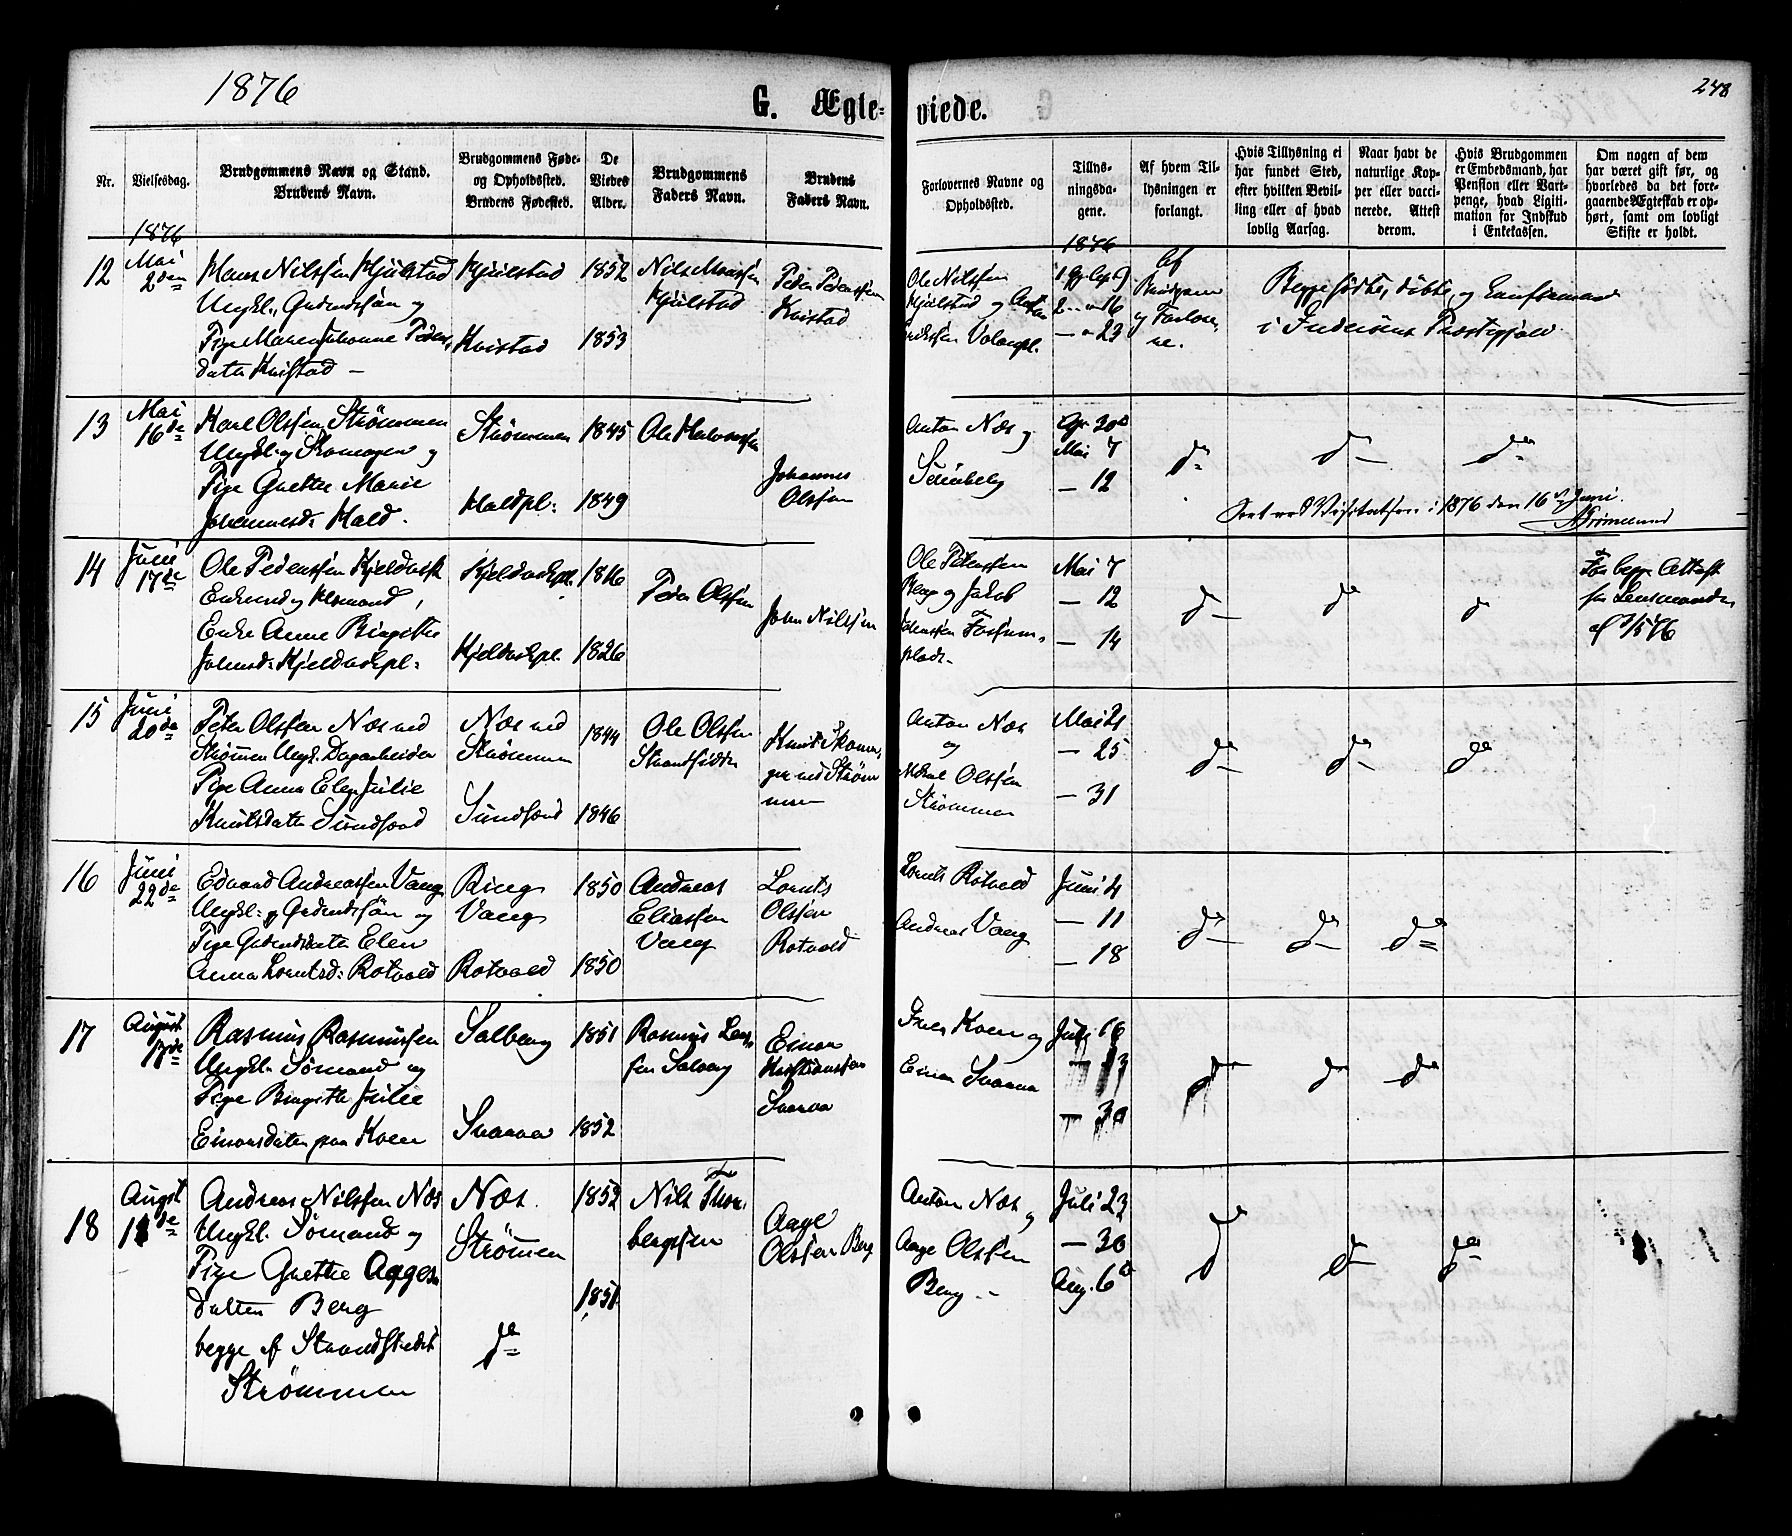 1876
G. Ægte-
viede.
248
Nr.
Vielsesdag.
Brudgommens Navn og Stand.
Brudens Navn.
Brudgommens Føde-
og Opholdssted.
Brudens Fødested.
De
Viedes
Alder.
Brudgommens
Faders Navn.
Brudens
Faders Navn.
Forlovernes Navne og
Opholdssted.
Tillys-
ningsda-
gene.
Af hvem Til-
lysningen er
forlangt.
Hvis Tillysning ei
har fundet Sted,
efter hvilken Bevil-
ling eller af hvad
lovlig Aarsag.
Naar havt de
naturlige Kop-
per eller vacci-
nerede. Attest
derom.
Hvis Brudgommen
er Embedsmand, har
Pension eller Vart-
penge, hvad Ligiti-
mation for Indskud
i Enkekassen.
Om nogen af dem
har været gift før, og
hvorledes da det fore-
gaaende Ægteskab er op-
hørt, samt om lovligt
Skifte er holdt.
1876
12
Mai
2den
Hans Nilssen Hjulstad
Ungkl., Gaardmandssøn og
Pige Maren Johanne Peders
datter Kvistad
Hjulstad
Kvistad
1852
1853
Nils
Hjulstad
Peder Pederssen
Kvistad
Ole Nilssen
Hjulstad og
1876
2 16
— 23
Af
Brudgom
og Forlover
ne.
Begge fødte, døbte og konfirmerede
i Inderøens Præstegjeld
13
Mai
16de
Karl Olssen Strømmen
Ungkl. og Skomager og
Pige Grethe Marie
Johannesd. Hald.
Strømmen
Haldpl.
1845
1849
Ole Halvorssen
Johannes
Olssen
Anton Næs og
Apr 30
Mai 7
— 12
do
do
do
Seet ved Visitatsen i 1876 den 16de Juni.
14
Juni
17de
Ole Pederssen Kjeldvik
Enkemand,
Enke Anne Birgitte
Johnsd. Kjeldvikpl.
Kjeldvikpl.
Kjeldvikpl.
1816
1826
Peder Olssen
John Nilssen
Ole Pederssen
og Jakob
plads.
Mai 7
— 12
— 14
do
do
do
For begge Attest
fra Lensmanden
15
Juni
20de
Peter Olssen Næs ved
Strømmen Ungk. Dagarbeider
Pige Anna Elen Julie
Knutsdatter Sundfær
Næs ved
Strømmen
1844
1846
Ole Olssen
Knut Skoma
ger ved Strøm
men
Anton Næs
og
Olssen
Strømmen
Mai 21
— 25
— 31
do
do
do
16
Juni
22de
Edvard Andreassen Vang
Ungkl. og Gaardmandssøn og
Pige Gaardmandsdatter Elen
Anna Lorntsd. Rotvold
Vang
Rotvold
1850
1850
Andreas
Eliassen
Vang
Lornts
Olssen
Rotvold
Lornts Rotvold
Andreas Vang
Juni 4
— 11
— 18
do
do
do
17
August
13de
Rasmus Rasmussen
Ungkl. Sømand og
Pige Birgitte Julie
Einarsdatter paa Koen
Salberg
Svarva
1851
1852
Rasmus
Salberg
Einar
Kristianssen
Svarva
Koen og
Einar Svarva
Juli 16
— 23
— 30
do
do
do
18
Augst
Andreas Nilssen Næs
Ungkl. Sømand og
Pige Grethe Aages
datter Berg
begge af Strandstedet
Strømmen
Næs.
Strømen
do
1852
1851
Nils Thor
bergsen
Aage
Olssen Berg
Anton Næs og
Aage Olssen
Berg
Juli 23
— 30
Aug. 6
do
do
do